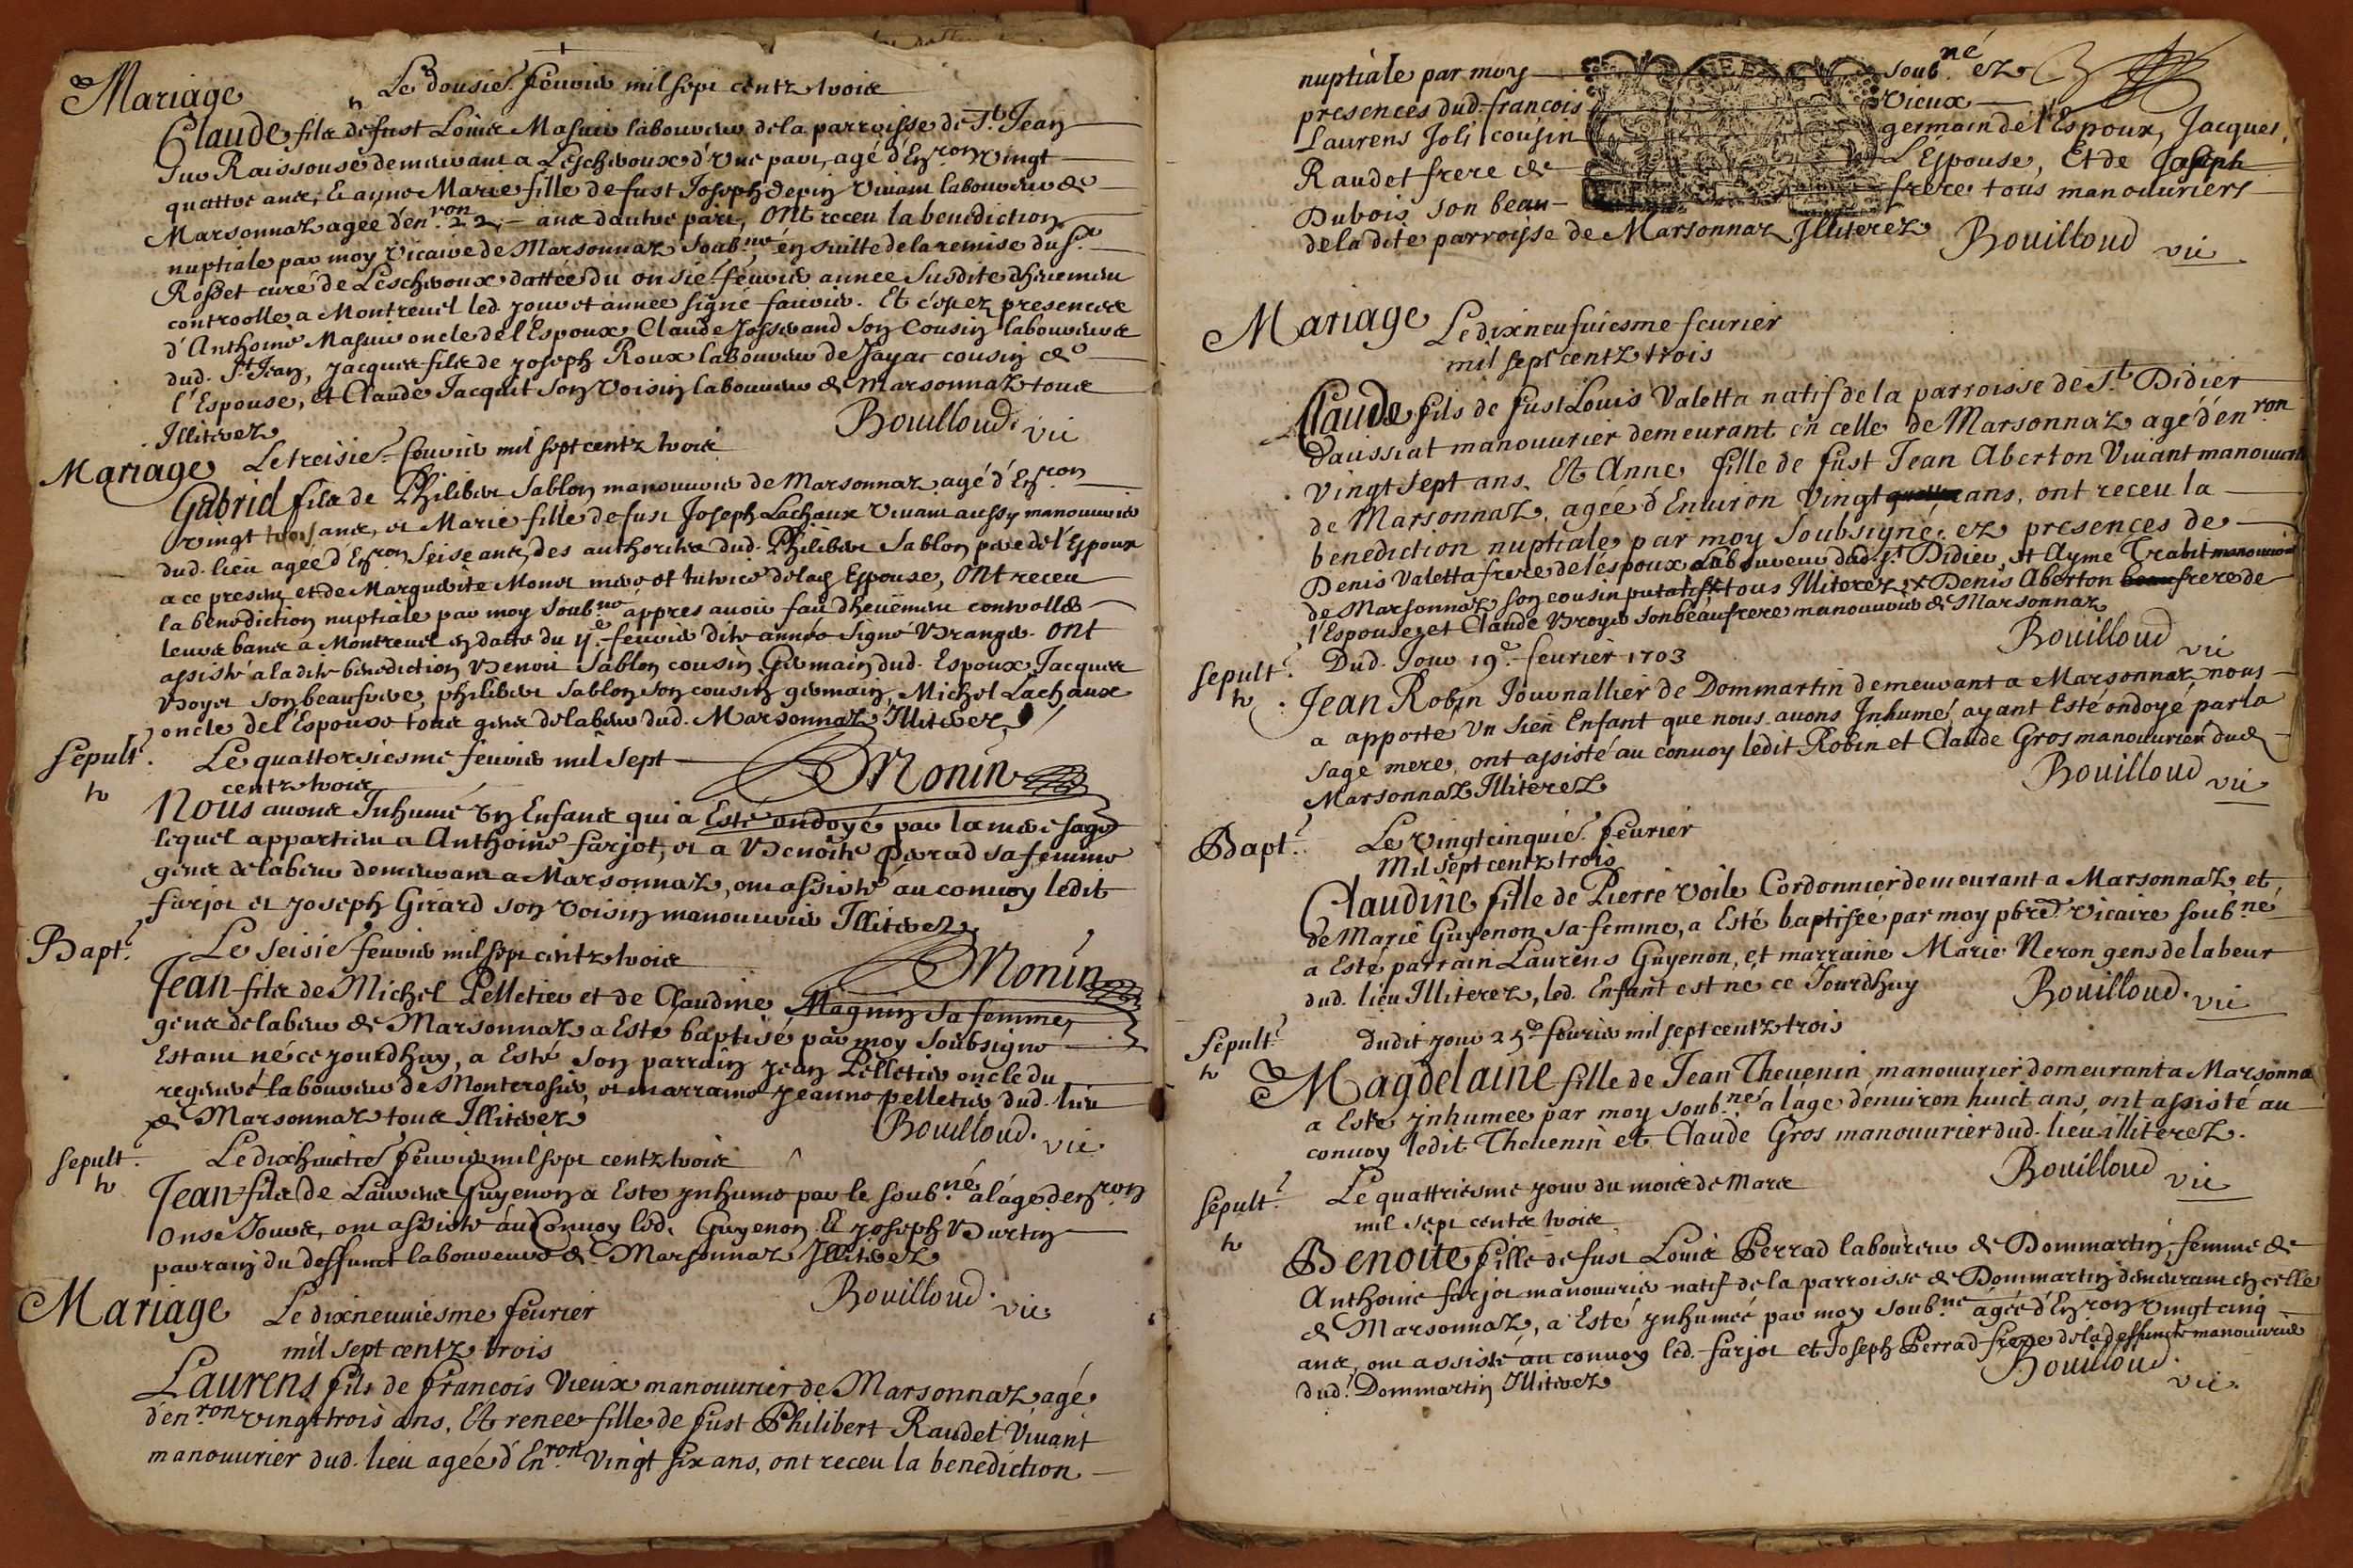 Mariage
Le dousie. feuvrier mil sept centz trois
Claude fils de fust Louis Masuir laboureur de la parroisse de St. Jean
Sur Raissouse demeurant a Leschroux d'Une part, agé d'En.ron Vingt
quattre ans, Et ayme Marie fille de fust Joseph Vivant laboureur de
Marsonnaz agée d'en.ron 22, ans d'autre part, Ont receu la benediction
nuptiale par moy Vicaire de Marsonnaz Soub.né en suitte de la remise du Sr.
Rosset curé de Leschroux dattée du onsie. feuvrier annee Susdite dheuement
controolle a Montreuel led. jour et annee signé faivrier. Et c'e ez presences
d'Anthoine Masuir oncle de l'Espoux, Claude Josserand Son Cousin laboureurs
dud. St Jean, Jacques fils de Joseph Roux laboureur de Jayat cousin de
l'Espouse, et Claude Jacquet Son Voisin laboureur de Marsonnaz tous
Illiterez
Bouilloud. vic
Mariage
Le treisie. feuvrier mil sept centz trois
Gabriel fils de Philibert Sablon manouvrier de Marsonnaz agé d'En.ron
vingt trois ans, et Marie fille de fust Joseph Lachaux Vivant aussy manouvrier
dud. lieu agée d'En.ron Seise ans, des authorités dud. Philibert Sablon pere de l'Espoux
a ce present et de Marguerite Monet mere et tutrice de lad. Espouse, Ont receu
la benediction nuptiale par moy soub.né appres avoir fait dheüement controlles
leurs bans a Montreuel en datte du 4e. feuvrier dite année Signé Uranges. Ont
assisté a la dite benediction Benoit Sablon cousin Germain dud. Espoux, Jacques
Boyer Son beaufrere, philibert Sablon Son cousin germain, Michel Lachaux
oncle de l'Espouse tous gens de labeur dud. Marsonnaz Illiterez
Monin
Sepult.
Le quattorsiesme feuvrier mil sept
centz trois
Nous avons Inhumé Un Enfant qui a Esté ondoyé par la mere sage
lequel appartient a Anthoine farjot, et a Benoite Perrad sa femme
gens de labeur demeurant a Marsonnaz, ont assisté au convoy ledit
farjot et Joseph Girard Son Voisin manouvrier Illiterez
Monin
Bapt.
Le Seisie. feuvrier mil sept centz trois
Jean fils de Michel Pelletier et de Claudine Magnin Sa femme,
gens de labeur de Marsonnaz a Esté baptisé par moy Soubsigné
Estant né ce jourdhuy, a Esté Son parrain Jean Pelletier oncle du
regeneré laboureur de Monterosier, et marraine Jeanne pelletier dud. lieu
de Marsonnaz tous Illiterez
Bouilloud. vic.
Sepult.
Le dixhuictie. feuvrier mil sept centz trois
Jean fils de Laurens Guyenon a Esté Inhumé par le soub.né a l'âge d'en.ron
Onse Jours, ont assisté au Convoy led. Guyenon Et Joseph Burtin
parrain du deffunct laboureurs de Marsonnaz Illiterez
Bouilloud. vic
Mariage
Le dixneuviesme feurier
mil sept centz trois
Laurens fils de françois Vieux manouurier de Marsonnaz agé
d'en.ron vingt trois ans, Et renee fille de fust Philibert Raudet Viuant
manouurier dud. lieu agée d'En.ron Vingt six ans, ont receu la benediction
nuptiale par moy soub.né ez
presences dud. francois Vieux
Laurens Joli cousin germain de l'Espoux, Jacques
Raudet frere de L'Espouse, Et de Joseph
Dubois son beau frere tous manouuriers
de la dite parroisse de Marsonnaz Illiterez
Bouilloud vic
Mariage
Le dixneufuiesme feurier
mil sept centz trois
Claude fils de fust Louis Valetta natif de la parroisse de St. Didier
d'aussiat manouurier demeurant en celle de Marsonnaz agé d'en.ron
vingt sept ans. Et Anne fille de fust Jean Aberton Viuant manouurier
de Marsonnaz, agée d'Enuiron Vingt quattre ans, ont receu la
benediction nuptiale par moy Soubsigné, ez presences de
Denis Valetta frere de l'éspoux Laboureur dud. St. Didier, et Ayme Trabit manouurier
de Marsonnaz son cousin putatif tous Illiterez, x Denis Aberton beau frere de
l'Espouse, et Claude Broyer Son beaufrere manouurier de Marsonnaz
Bouilloud vic
Sepult.
Dud. Jour 19e. feurier 1703
Jean Robin Journallier de Dommartin demeurant a Marsonnaz nous
a apporté Un Sien Enfant que nous auons Inhumé, ayant Esté ondoyé par la
Sage mere, ont assisté au conuoy ledit Robin et Claude Gros manouurier dud.
Marsonnaz Illiterez
Bouilloud vic
Bapt.
Le vingtcinquie. feurier
Mil Sept centz trois
Claudine fille de Pierre Voile Cordonnier demeurant a Marsonnaz et
de Marie Guyenon sa femme, a Esté baptisée par moy pbre. Vicaire soub.né
a Esté parrain Laurens Guyenon, et marraine Marie Neron gens de labeur
dud. lieu Illiterez, led. Enfant est né ce Jourdhuy
Bouilloud. vic
Sepult.
Dudit jour 25e. feurier mil sept centz trois
Magdelaine fille de Jean Theuenin manouurier demeurant a Marsonna
a Esté ynhumee par moy soub.né a lâge d'enuiron huict ans, ont assisté au
conuoy ledit Theuenin et Claude Gros manouurier dud. lieu illiterez.
Bouilloud vic
Sepult.
Le quattriesme jour du mois de Mars
mil sept centz trois
Benoite fille de fust Louis Perrad laboureur de Dommartin, femme de
Anthoine farjot manouurier natif de la parroisse de Dommartin demeurant en celle
de Marsonnaz, a Esté ynhumée par moy soub.né âgée d'En.ron Vingt cinq
ans, ont assisté au convoy led. farjot et Joseph Perrad frere de la deffuncte manouurier
dud. Dommartin Illiterez
Bouilloud. vic.